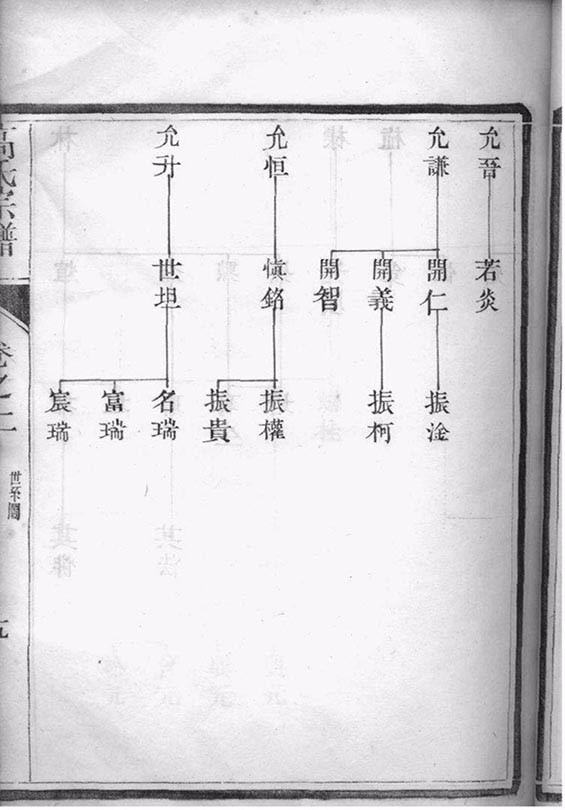 允晉
允謙
允恒
允升
若炎
開仁
開義
開智
慎銘
世坦
振淦
振柯
振權
振貴
名瑞
富瑞
宸瑞
高氏宗譜
卷之二
世系圖
九